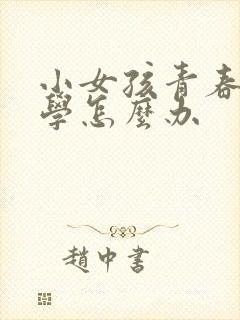 小女孩青春
學怎麼办
趙中書